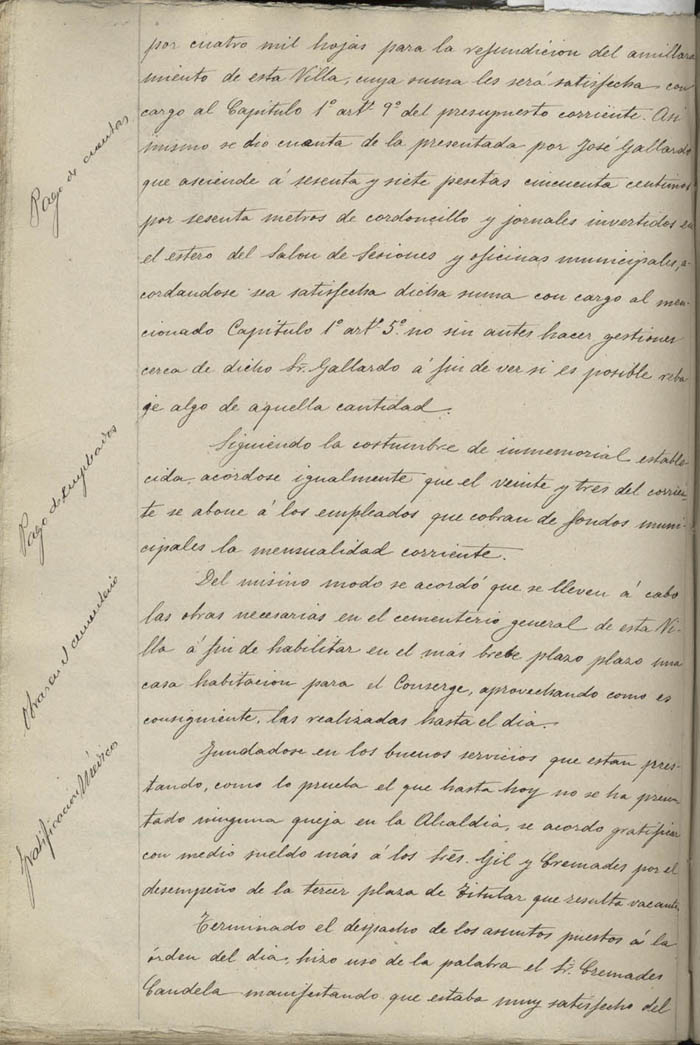 por cuatro mil hojas para la refundicion del amillara
miento de esta Villa, cuya suma les será satisfecha con
cargo al Capítulo 1º artº 9º del presupuesto corriente. Asi
mismo se dio cuenta de la presentada por José Gallardo
que asciende á sesenta y siete pesetas cincuenta centimos
por sesenta metros de cordoncillo y jornales invertidos en
el estero del Salon de Sesiones y oficinas municipales, a-
cordandose sea satisfecha dicha suma con cargo al men-
cionado Capitulo 1º artº 5º no sin antes hacer gestiones
cerca de dicho Sr. Gallardo á fin de ver si es posible reba
je algo de aquella cantidad.
Pago de cuentas
Siguiendo la costumbre de inmemorial estable
cida, acordose igualmente que el veinte y tres del corrien-
te se abone á los empleados que cobran de fondos muni-
cipales la mensualidad corriente.
Pago de Empleados
Del mismo modo se acordó que se lleven á cabo
las obras necesarias en el cementerio general de esta Vi-
lla á fin de habilitar en el más brebe plazo plazo una
casa habitacion para el Conserge, aprovechando como es
consiguiente, las realizadas hasta el dia.
Obras en el cementerio
Fundadose en los buenos servicios que estan pres-
tando, como lo prueba el que hasta hoy no se ha presen
tado ninguna queja en la Alcaldia, se acordo gratificar
con medio sueldo más á los Srés. Gil y Cremades por el
desempeño de la tercer plaza de Titular que resulta vacante.
Gratificacion Médicos
Terminado el despacho de los asuntos puestos á la
órden del dia, hizo uso de la palabra el Sr. Cremades
Candela manifestando que estaba muy satisfecho del